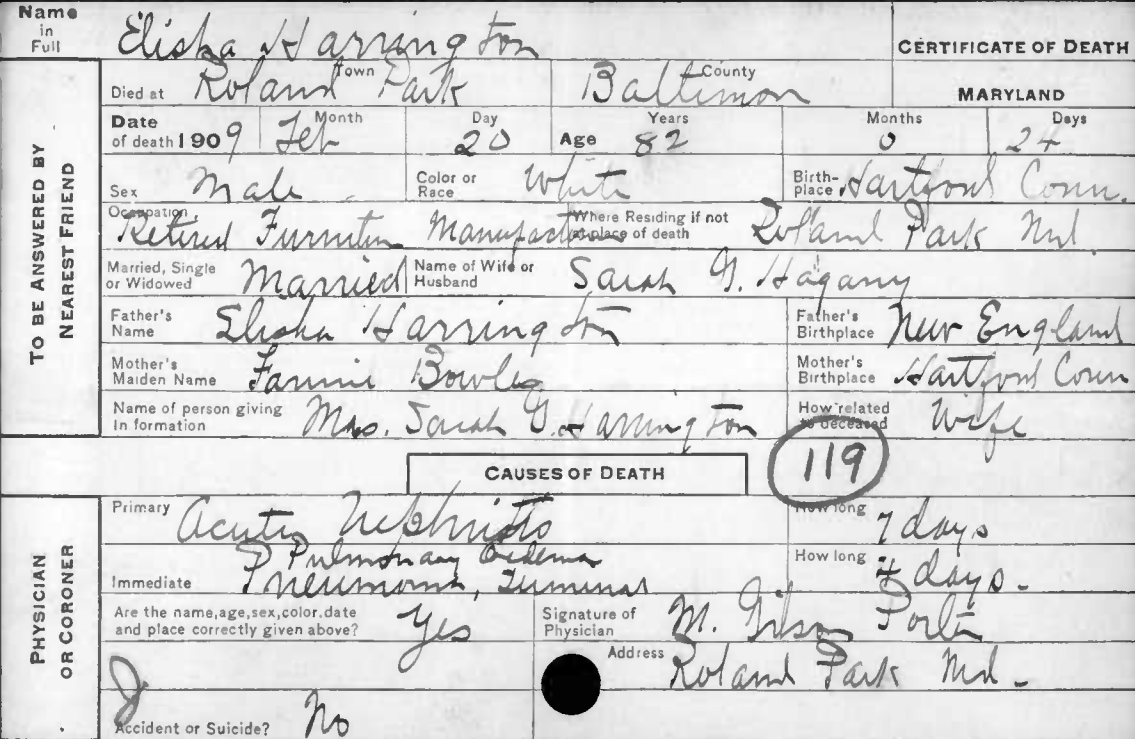 Name in Full Elisha Harrington CERTIFICATE OF DEATH
Died at Roland Park Town Baltimore County MARYLAND
Date of death 1909 Month Feb Day 20 Age Years 82 Months 0 Days 24
Sex Male Color or Race White Birthplace Hartford Conn.
Occupation Retired Furniture Manufacturer Where Residing if not at place of death Roland Park Md.
Married, Single or Widowed Married Name of Wife or Husband Sarah G. Hagany
Father's Name Elisha Harrington Father's Birthplace New England
Mother's Maiden Name Fannie Bowles Mother's Birthplace Hartford Conn
Name of person giving In formation Mrs. Sarah G. Harrington How related to deceased Wife
TO BE ANSWERED BY NEAREST FRIEND
119
CAUSES OF DEATH
Primary Acute Nephritis How long 7 days
Pulmonary Oedema
Immediate Pneumonia, Terminal How long 4 days.
Are the name,age,sex,color,date and place correctly given above? Yes Signature of Physician M. Gibson Porter
Address Roland Park Md.
Accident or Suicide? No
PHYSICIAN OR CORONER